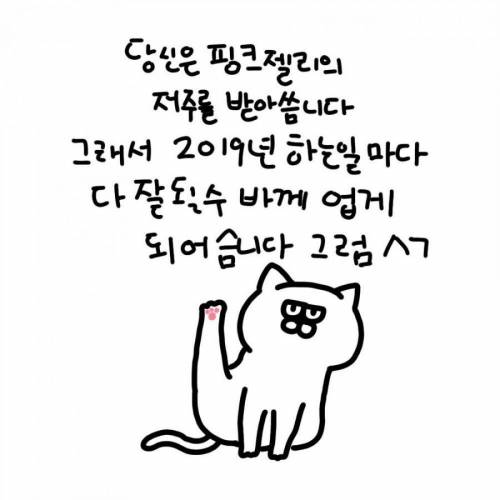 당신은 핑크젤리의
저주를 받아씀니다
그래서 2019년 하는일마다
다 잘 될수 바께 업게
되어습니다 그럼 ㅅㄱ